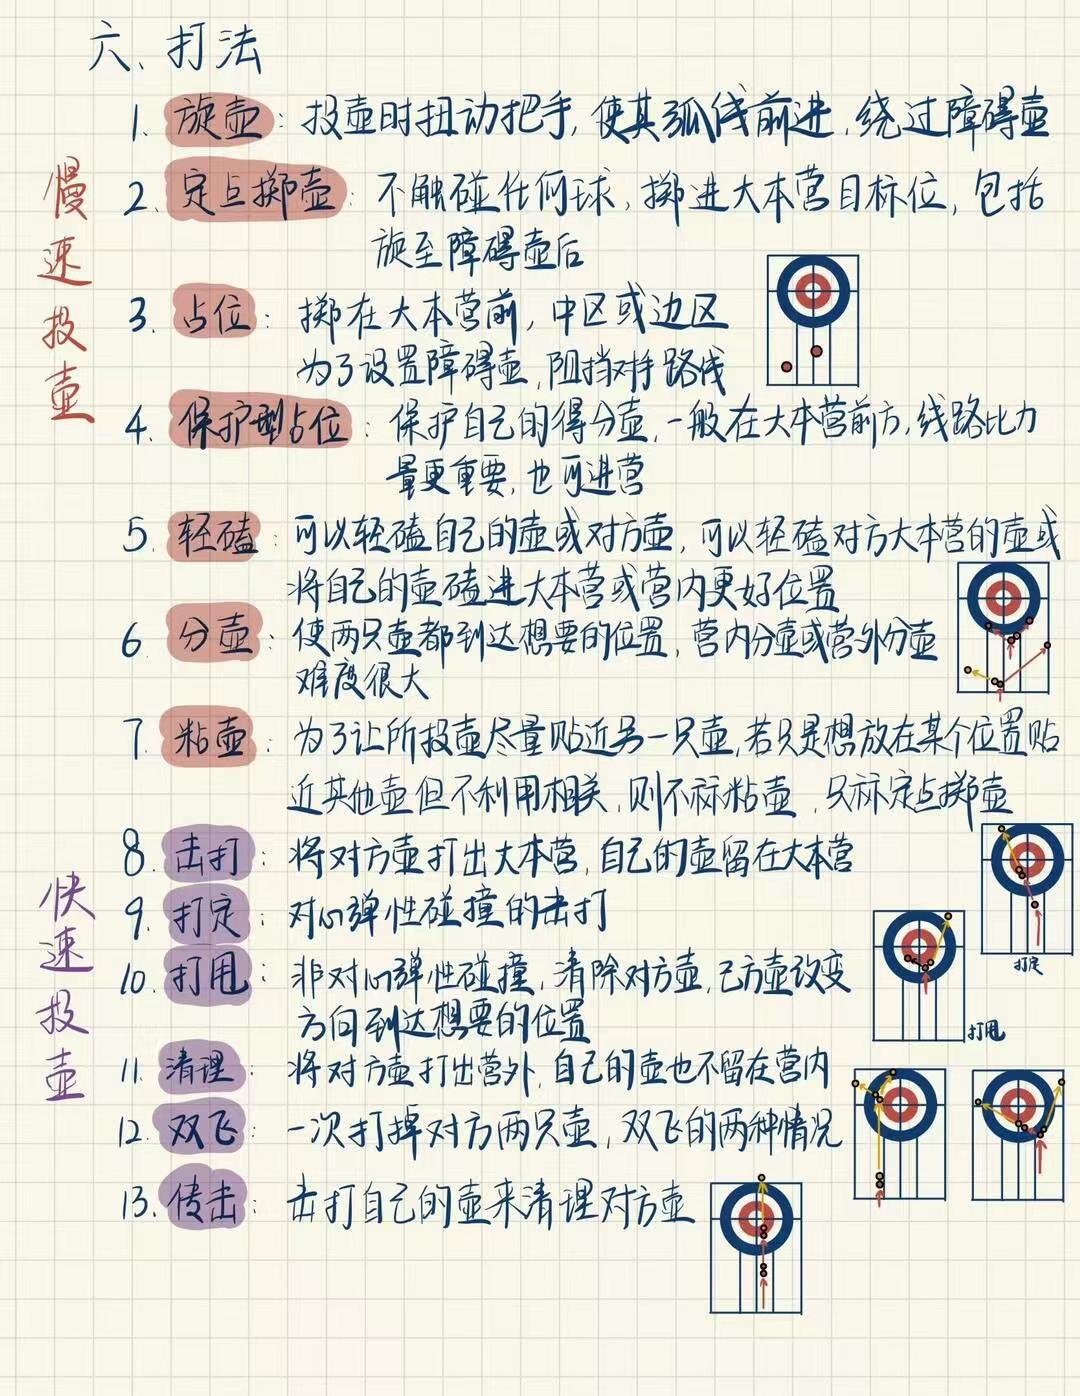 六、打法
1、旋壶：投壶时扭动把手，使其弧线前进，绕过障碍壶
慢速投壶
2、定点掷壶：不触碰任何球，掷进大本营目标位，包括
旋至障碍壶后
3、占位：掷在大本营前，中区或边区
为了设置障碍壶，阻挡对手路线
4、保护型占位：保护自己的得分壶，一般在大本营前方，线路比力
量更重要，也可进营
5、轻磕：可以轻磕自己的壶或对方壶，可以轻磕对方大本营的壶或
将自己的壶磕进大本营或营内更好位置
6、分壶：使两只壶都到达想要的位置，营内分壶或营外分壶
难度很大
7、粘壶：为了让所投壶尽量贴近另一只壶，若只是想放在某个位置贴
近其他壶但不利用相关，则不标粘壶，只标定点掷壶
快速投壶
8、击打：将对方壶打出大本营，自己的壶留在大本营
9、打定：对心弹性碰撞的击打
打定
10、打甩：非对心弹性碰撞，清除对方壶，己方壶改变
方向到达想要的位置
打甩
11、清理：将对方壶打出营外，自己的壶也不留在营内
12、双飞：一次打掉对方两只壶，双飞的两种情况
13、传击：击打自己的壶来清理对方壶